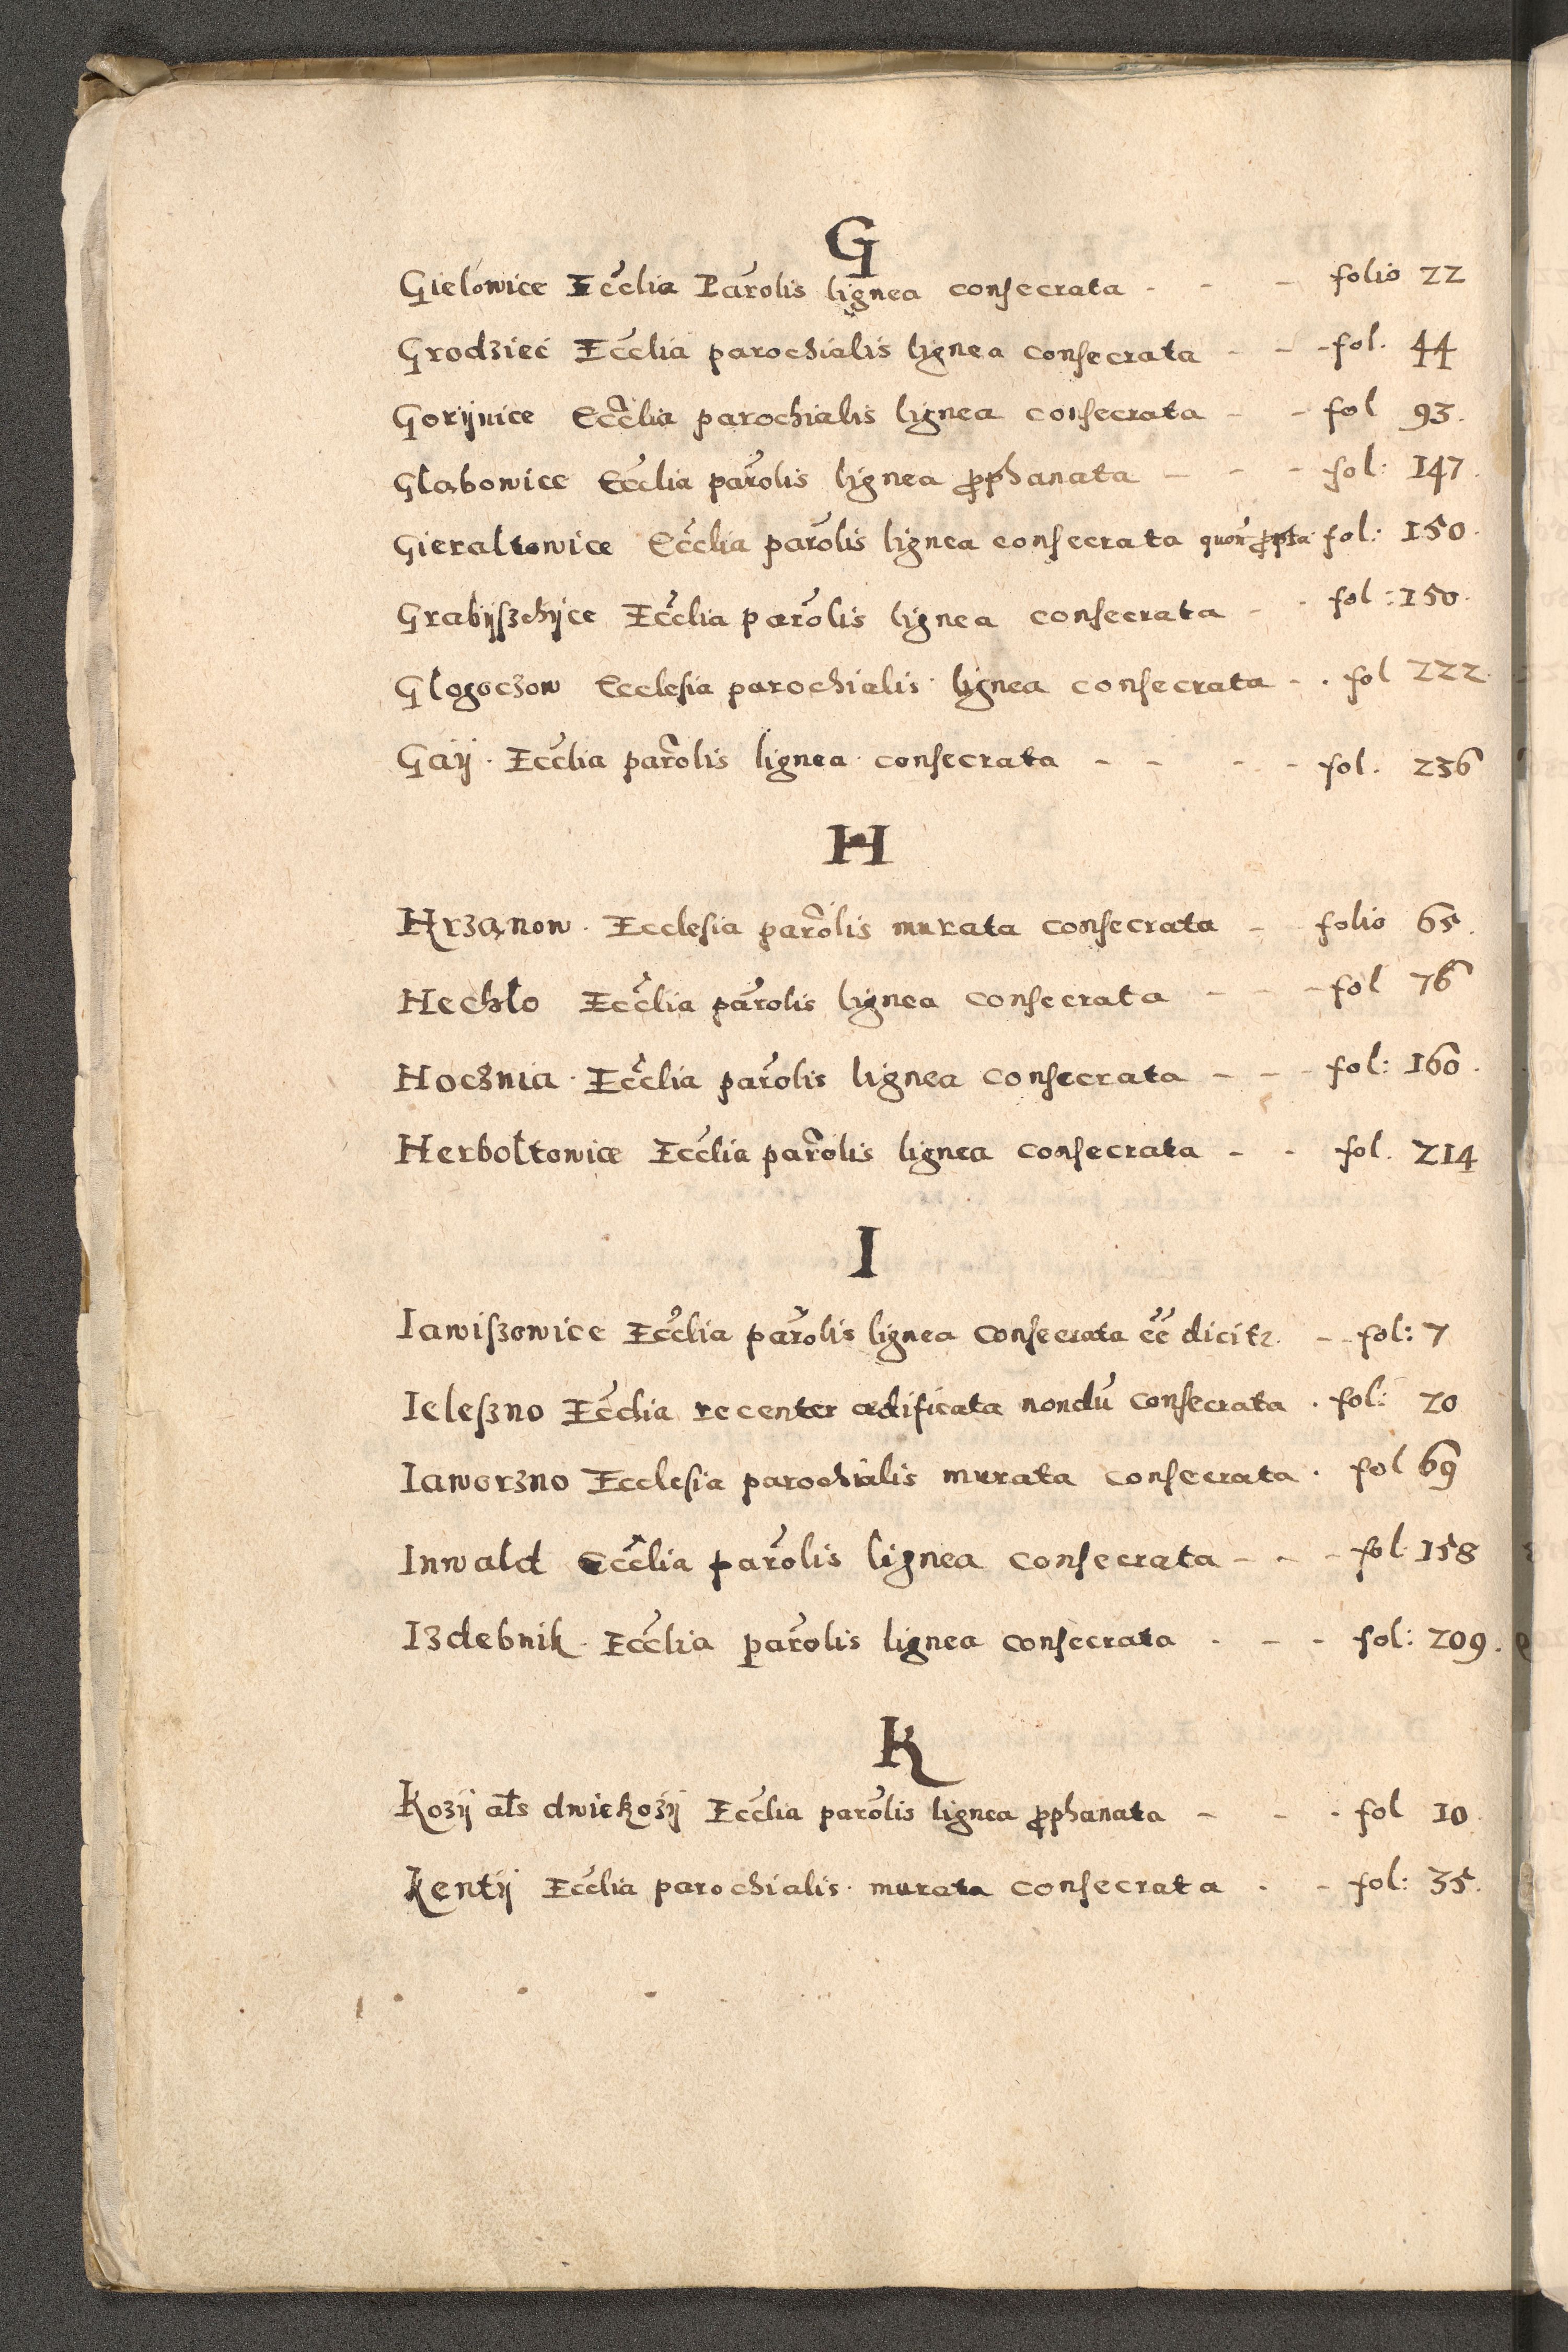 G
Gielowice Ecclia Parolis lignea consecrata - - - folio 22
Grodziec Ecclia parochialis lignea consecrata - - - fol. 44
Gorijnice Ecclia parochialis lignea consecrata - - fol 93.
Głąbowice Ecclia parolis lignea prophanata - - - fol: 147.
Gieraltowice Ecclia parolis lignea consecrata fol: 150.
Grabijszchijce Ecclia parolis lignea consecrata - - fol: 150.
Glogoczow Ecclesia parochialis lignea consecrata - . fol 222.
Gaij. Ecclia parolis lignea consecrata - - - - fol. 236
H
Hrząnow. Ecclesia parolis murata consecrata - folio 65.
Hechło Ecclia parolis lignea consecrata - - - fol 76
Hocznia. Ecclia parolis lignea consecrata - - - fol: 160.
Herbołtowice Ecclia parolis lignea consecrata - - fol. 214
I
Iawiszowice Ecclia parolis lignea consecrata eē dicitz. - - fol: 7
Ieleszno Ecclia recenter ædificata nondū consecrata . fol: 20
Iaworzno Ecclesia parochialis murata consecrata . fol 69
Inwałd Ecclia parolis lignea consecrata - - - fol. 158
Izdebnik. Ecclia parolis lignea consecrata . - - fol: 209.
K
Kozij ałs dwiekozij Ecclia parolis lignea prophanata - - . fol 10.
Kentij Ecclia parochialis. murata consecrata . - fol: 35.